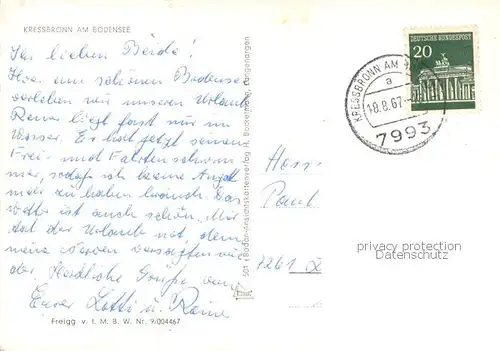 KRESSBRONN AM BODENSEE
Ihr lieben Beide!
Hier am schönen Bodensee
verleben wir unseren Urlaub
Rainer liegt fast nur im
Wasser. Er hat jetzt seinen
Frei- und Fahrtenschwim
mer, sodaß ich keine Angst
mehr zu haben brauch. Das
Wetter ist auch schön. Mir
tat der Urlaub not, denn
meine Nerven versagten
der. Herzliche Grüße von
Eurer Lotti u. Rainer
Freigg v. I. M. B. W. Nr. 9/004467
501 Bodan-Ansichtskartenverlag R. Bockelmann, Langenargen
DEUTSCHE BUNDESPOST
20
KRESSBRONN AM
a
18.8.67
7993
Paul
7261
privacy protection
Datenschutz